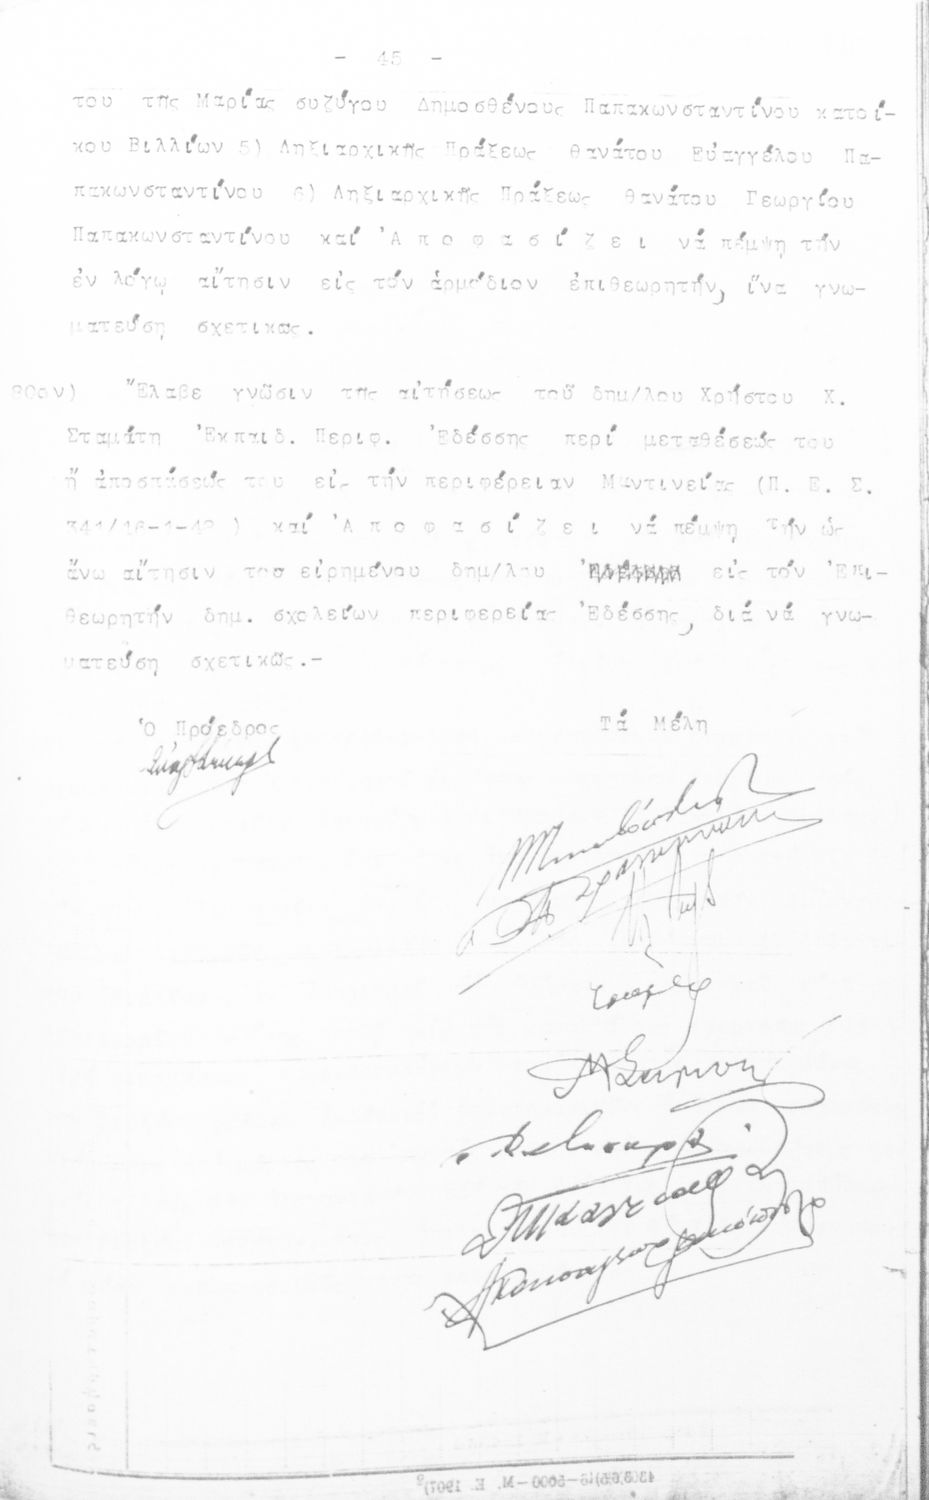 - 45 -
του της Μαρίας συζύγου Δημοσθένους Παπακωνσταντίνου κατοί-
κου Βιλλίων 5) Ληξιαρχικῆς Πράξεως θανάτου Εὐαγγέλου Πα-
πακωνσταντίνου 6) Ληξιαρχικῆς Πράξεως θανάτου Γεωργίου
Παπακωνσταντίνου καί 'Α π ο φ α σ ί ζ ε ι νά πέμψη τήν
ἐν λόγῳ αἴτησιν εἰς τόν ἁρμόδιον ἐπιθεωρητήν, ἵνα γνω-
ματεύση σχετικως.
80ον) Ἔλαβε γνῶσιν της αἰτήσεως τοῦ δημ/λου Χρήστου Χ.
Σταμάτη Ἐκπαιδ. Περιφ. Ἐδέσσης περί μεταθέσεώς του
ἤ ἀποσπάσεώς του εἰς τήν περιφέρειαν Μαντινείας (Π. Ε. Σ.
341/16-1-42 ) καί 'Α π ο φ α σ ί ζ ε ι νά πέμψη τήν ὡς
ἄνω αἴτησιν του εἰρημένου δημ/λου εἰς τόν Ἐπι-
θεωρητήν δημ. σχολείων περιφερείας Ἐδέσσης, διά νά γνω-
ματεύση σχετικῶς.-
Ὁ Πρόεδρος Τά Μέλη